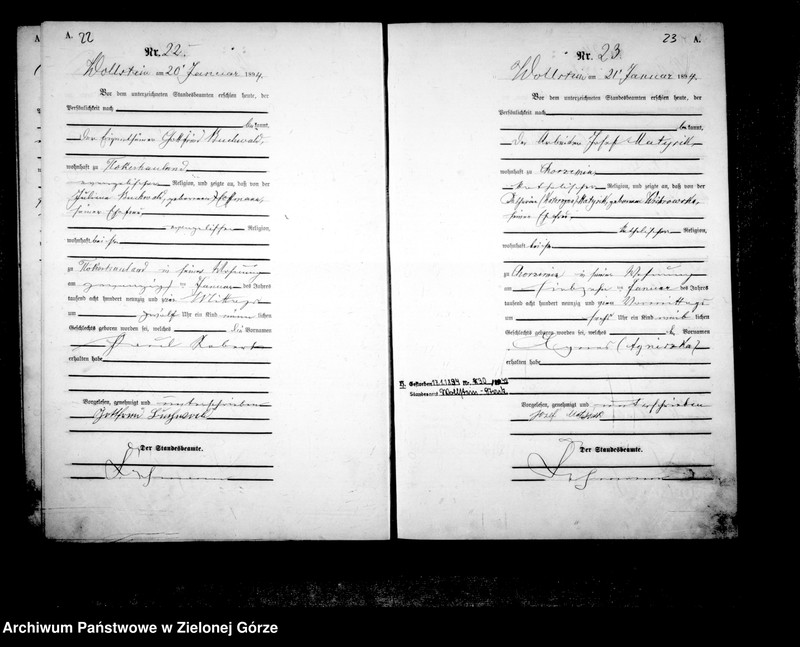 A. 22
Nr. 22.
Wollstein am 20 Januar 1894.
Vor dem unterzeichneten Standesbeamten erschien heute, der
Persönlichkeit nach
bekannt,
der Eigenthümer Gottfried Buchwald,
wohnhaft zu
evangelischer Religion, und zeigte an, daß von der
Juliane Buchwald, geborenen Hoffmann,
seiner Ehefrau
evangelischer Religion,
wohnhaft bei ihm
zu in seiner Wohnung
am Januar des Jahres
tausend acht hundert neunzig und vier Mittags
um zwölf Uhr ein Kind männlichen
Geschlechts geboren worden sei, welches die Vornamen
Paul Robert
erhalten habe
Vorgelesen, genehmigt und unterschrieben
Gottfried
Der Standesbeamte.
Lehmann
23 A.
Nr. 23.
Wollstein am 21 Januar 1894.
Vor dem unterzeichneten Standesbeamten erschien heute, der
Persönlichkeit nach
bekannt,
der Arbeiter Josef Matysik,
wohnhaft zu Chorzemin
katholischer Religion, und zeigte an, daß von der
Matysik, geborenen
seiner Ehefrau
katholischer Religion,
wohnhaft bei ihm
zu Chorzemin in seiner Wohnung
am siebzehn Januar des Jahres
tausend acht hundert neunzig und vier Vormittags
um sechs Uhr ein Kind weiblichen
Geschlechts geboren worden sei, welches Vornamen
Agnes (Agnieszka)
erhalten habe
Gestorben
Standesamt Wollstein
Vorgelesen, genehmigt und unterschrieben
Josef
Der Standesbeamte.
Lehmann
Archiwum Państwowe w Zielonej Górze